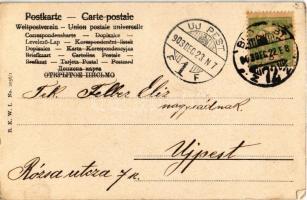 Postkarte — Carte postale
Weltpostverein — Union postale universelle
Correspondenzkarte — Dopisnice
Levelező-Lap — Korespondenční lístek
Dopisnica — Karta Korespondencyjna
Briefkaart — Cartolina postale
Brefkort — Tarjeta Postal — Postcard
ОТКРЫТОЕ ПИСЬМО
UJPEST
903 DEC. 23. N 7
1
F F
72
B. K. W. I.
Tek. Felber Eliz
nagysádnak
Ujpest
Rózsa utcza 7 k.